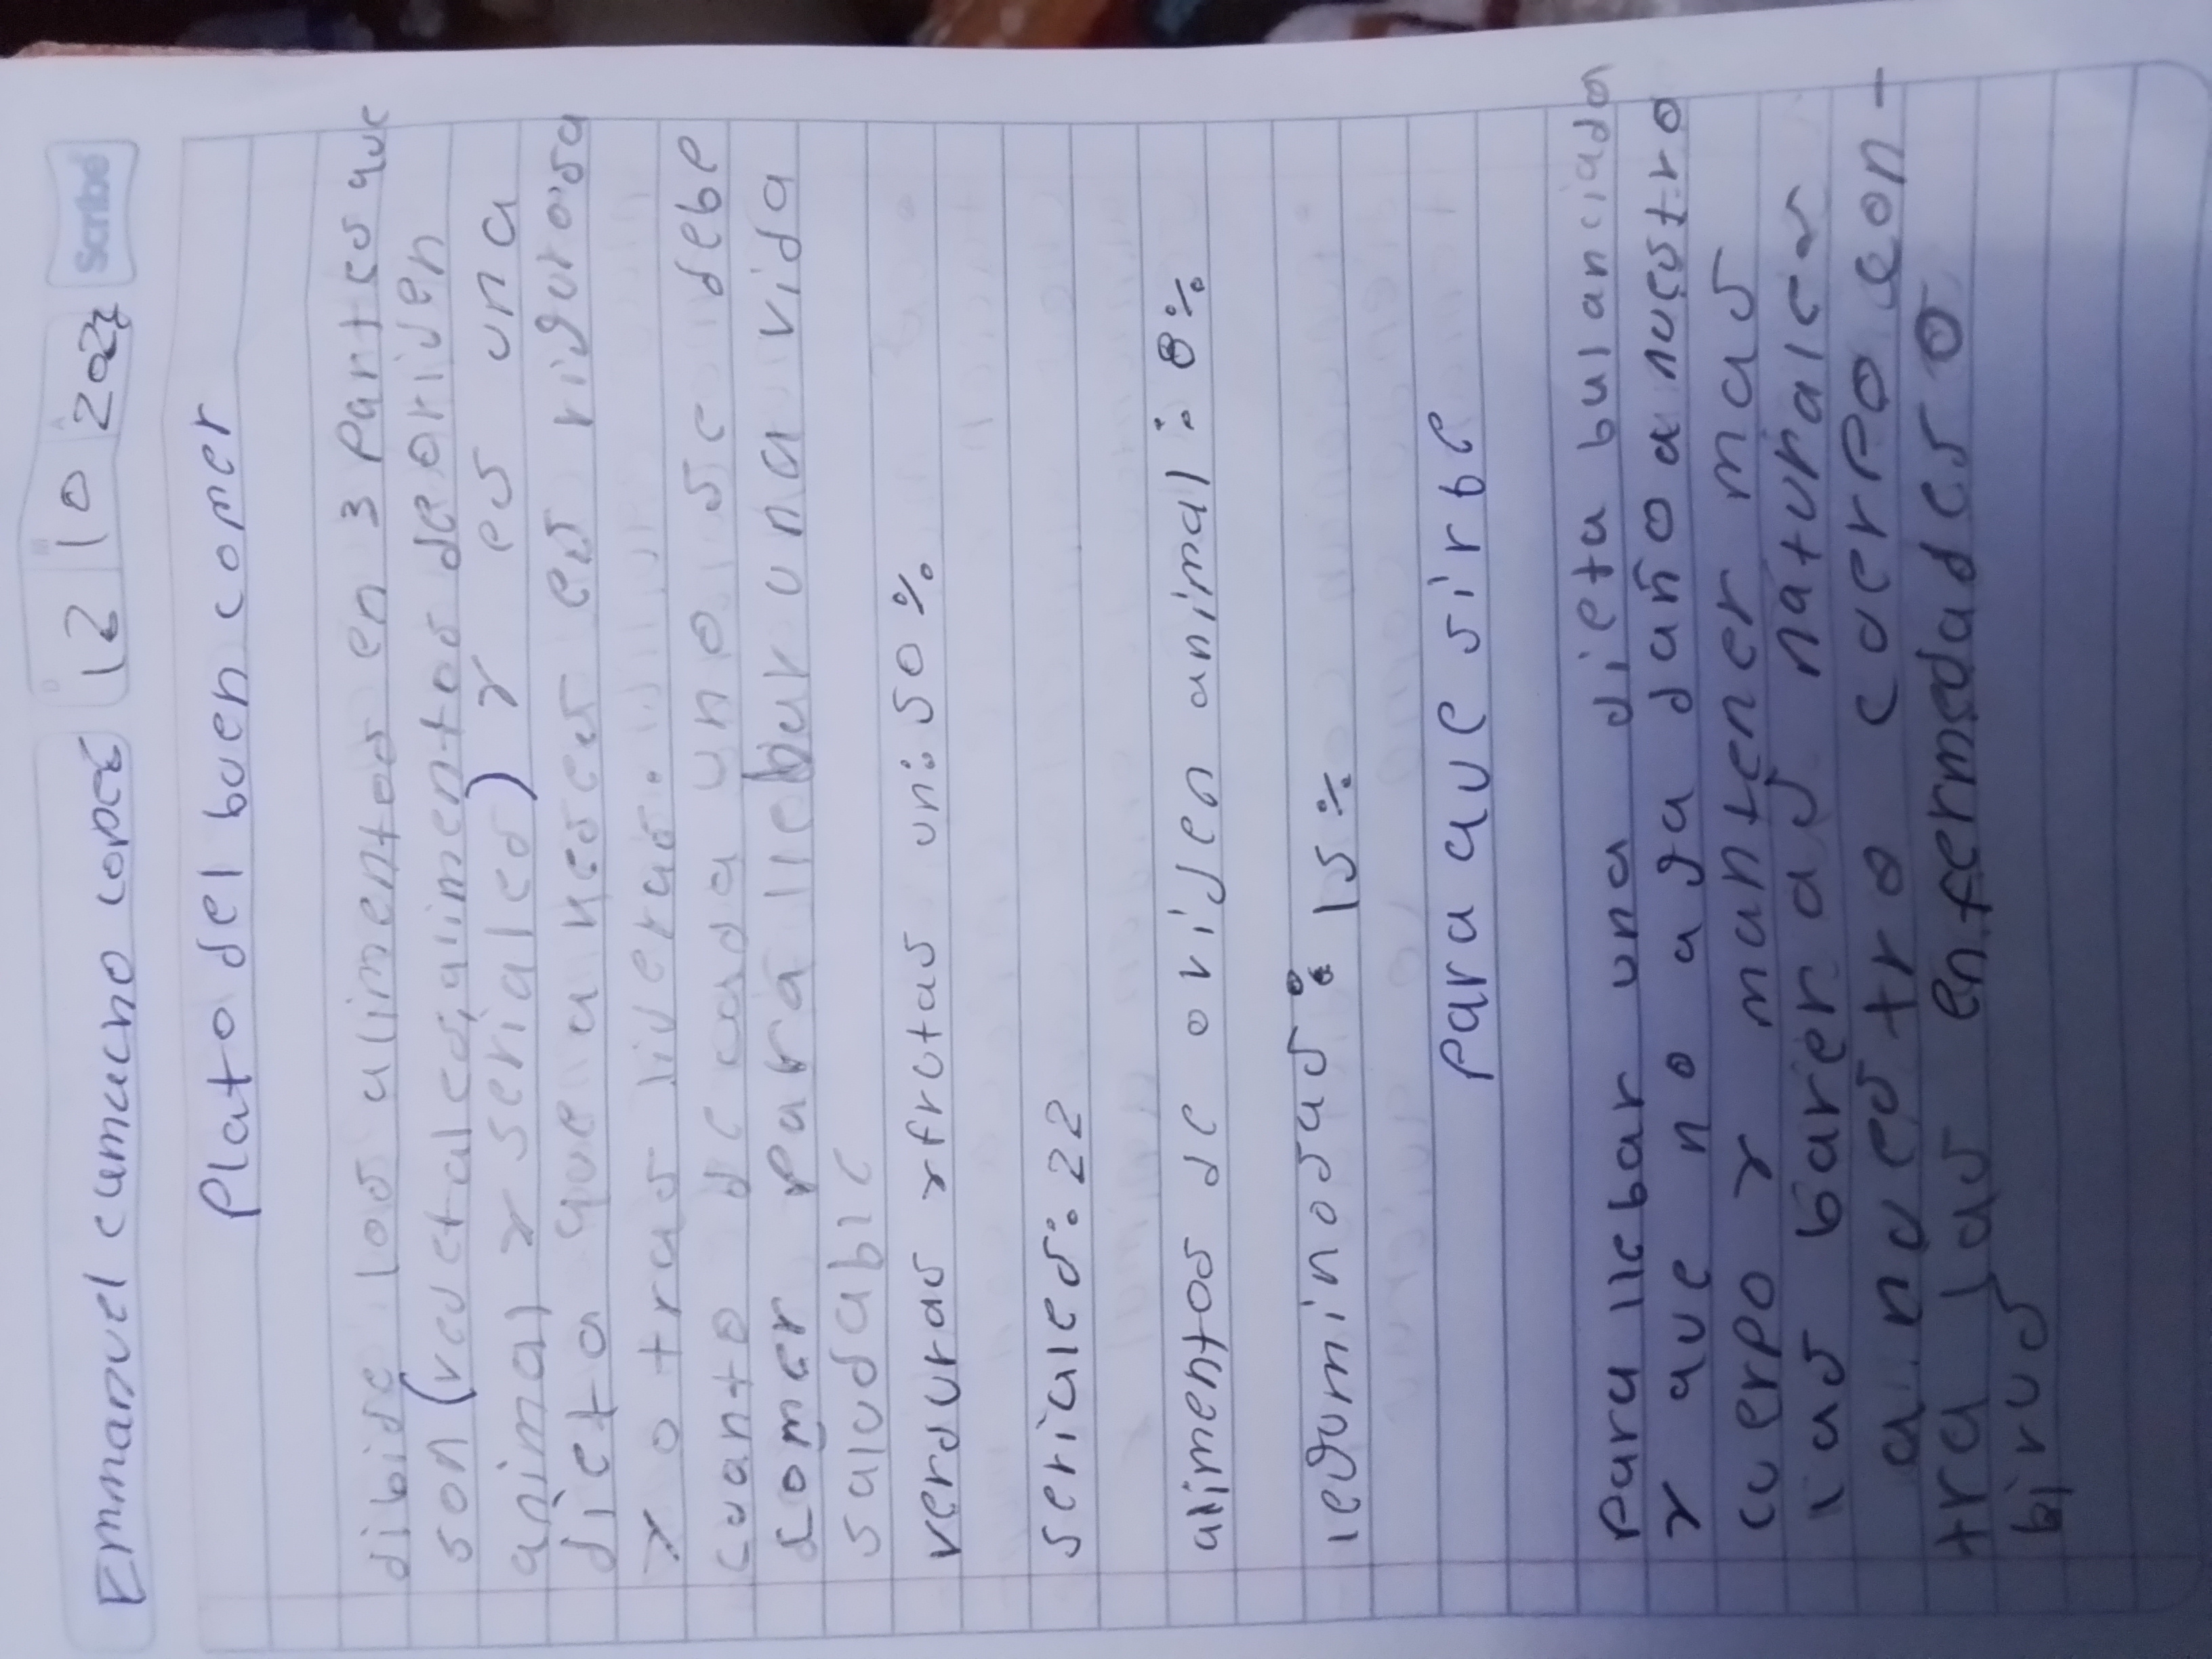 Emmanuel camacho lopez 12 10 202 Scribe
Plato del buen comer
dibide los alimentos en 3 Partes que
son (vegetales, alimentos de oriden
animal y seriales) y es una
dieta que a veces es rigurosa
y otras liveras.
cuanto de cada uno se debe
comer para llebar una vida
saludable
verduras y frutas un: 50%
seriales: 22
alimentos de oriden animal: 8%
leguminosas: 15%
Para que sirbe
Para llebar una dieta balanciada
y que no aga daño a nuestro
cuerpo y mantener mas
las bareras naturales
a nuestro cuerpo con-
tra las enfermedades o
birus